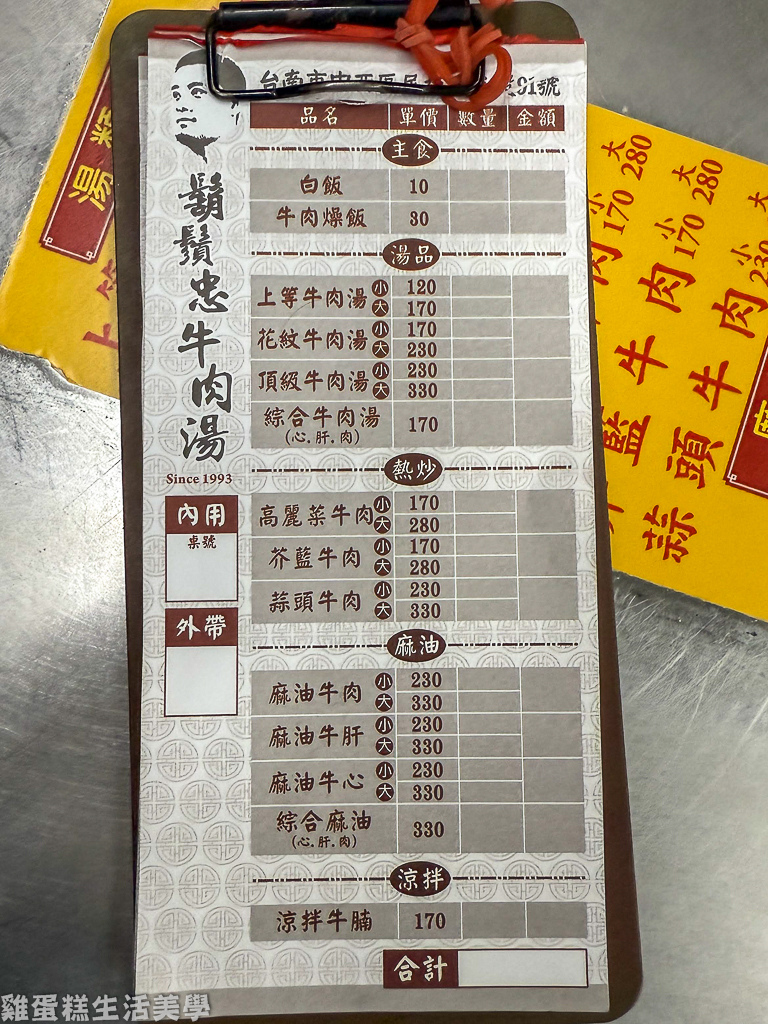 台南市中西區民
91號
鬍鬚忠牛肉湯
Since 1993
內用
桌號
外帶
品名 單價 數量 金額
主食
白飯 10
牛肉燥飯 30
湯品
上等牛肉湯 小 120
大 170
花紋牛肉湯 小 170
大 230
頂級牛肉湯 小 230
大 330
綜合牛肉湯 170
(心.肝.肉)
熱炒
高麗菜牛肉 小 170
大 280
芥藍牛肉 小 170
大 280
蒜頭牛肉 小 230
大 330
麻油
麻油牛肉 小 230
大 330
麻油牛肝 小 230
大 330
麻油牛心 小 230
大 330
綜合麻油 330
(心.肝.肉)
涼拌
涼拌牛腩 170
合計
湯類
肉 小170 大280
藍牛肉 小170 大280
蒜頭牛肉 小230 大
雞蛋糕生活美學